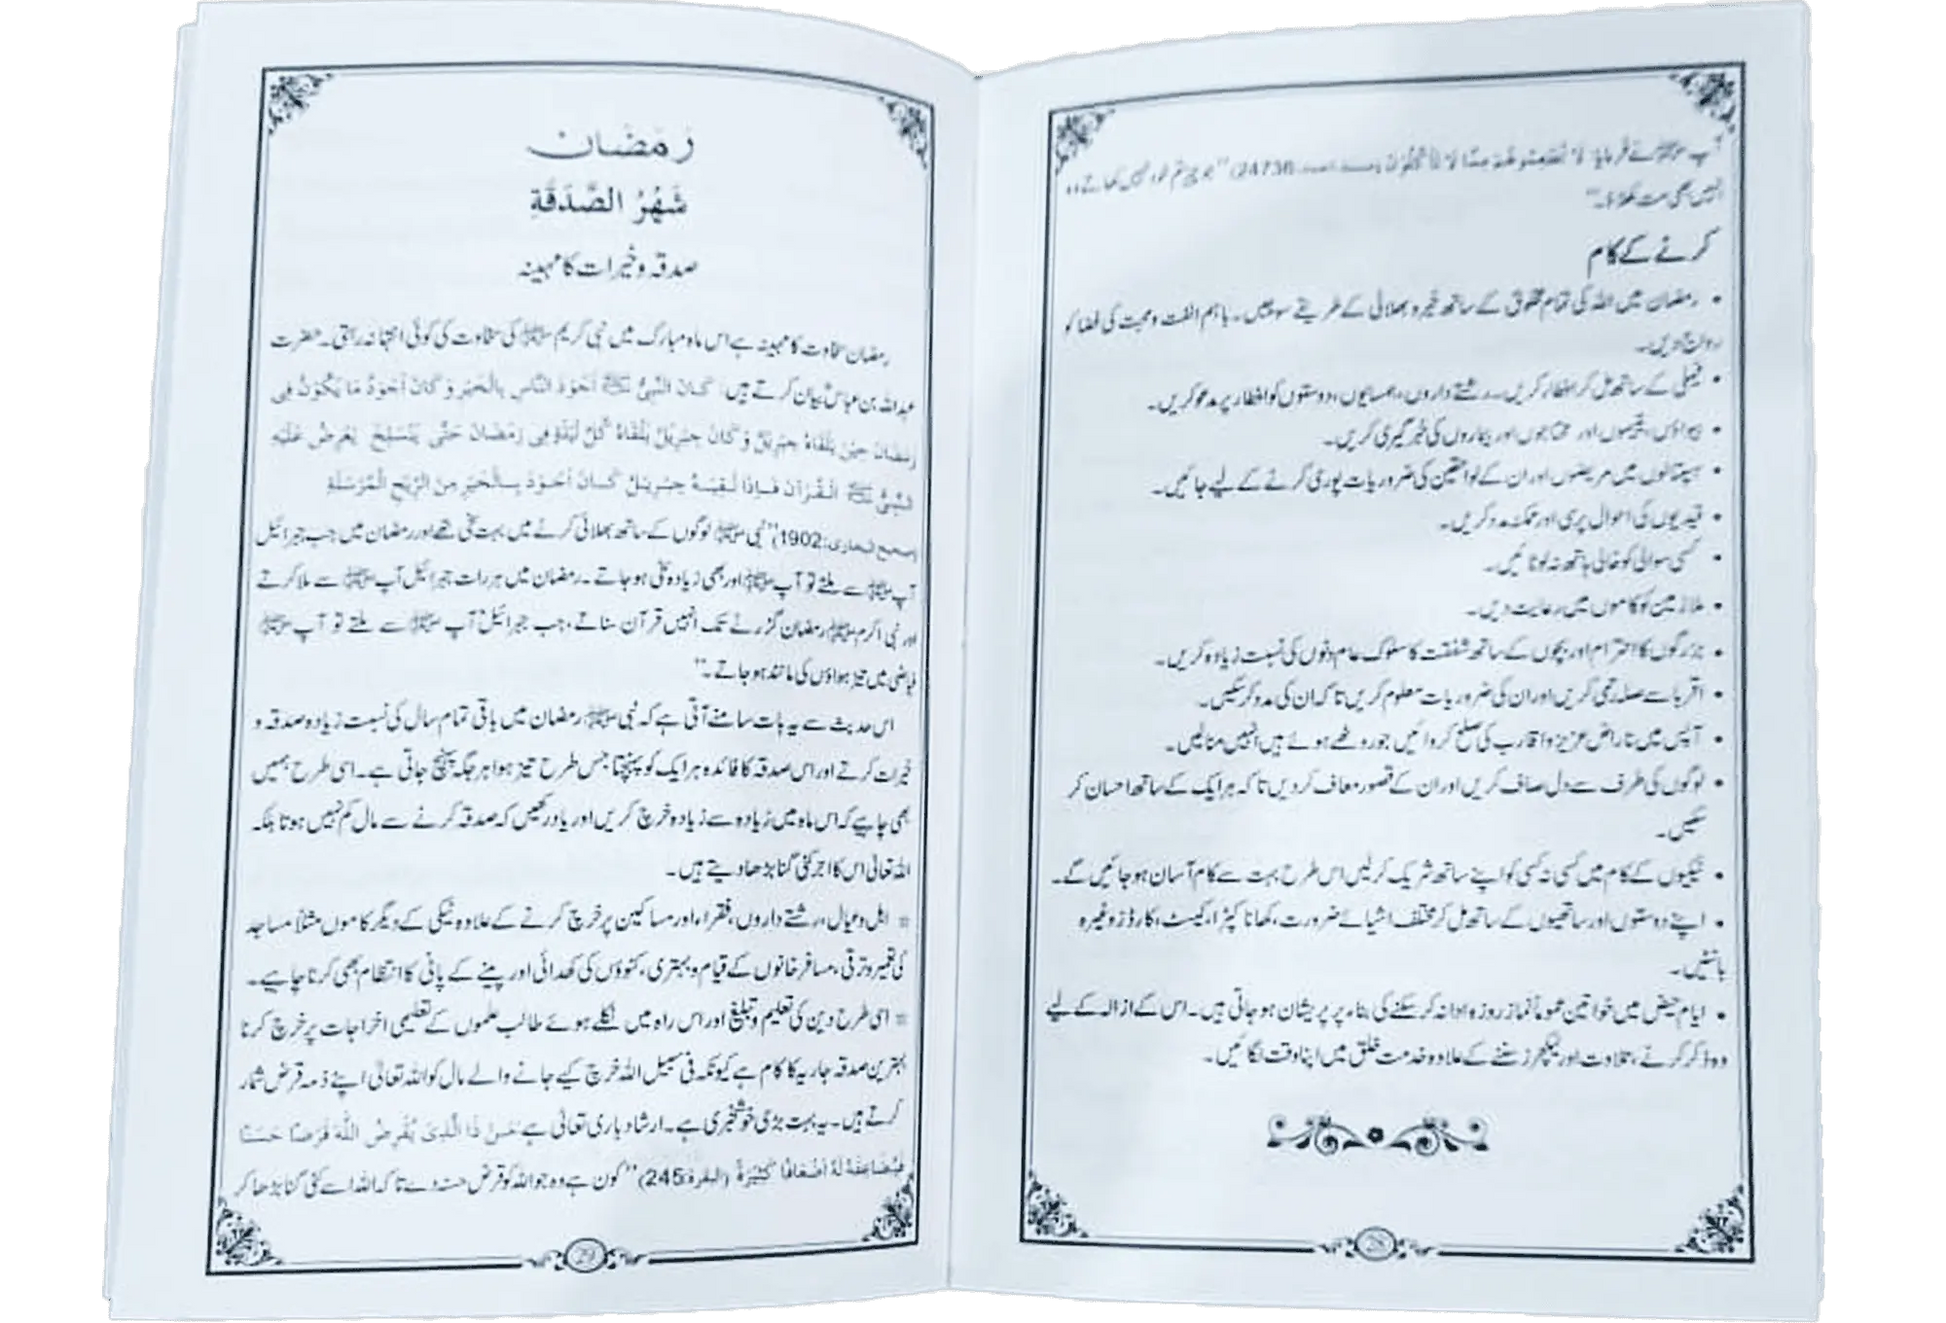 آپ ﷺ نے فرمایا: لَا تُطْعِمُوهُمْ مِمَّا لَا تَأْكُلُوْنَ (مسند احمد: 24736) ”جو چیز تم خود نہیں کھاتے وہ
انہیں بھی مت کھلاؤ۔“
کرنے کے کام
• رمضان میں اللہ کی تمام مخلوق کے ساتھ خیر و بھلائی کے طریقے سوچیں۔ باہم الفت و محبت کی فضا کو
رواج دیں۔
• فیملی کے ساتھ مل کر افطار کریں۔ رشتے داروں، ہمسایوں، دوستوں کو افطار پر مدعو کریں۔
• بیواؤں، یتیموں اور محتاجوں اور بیماروں کی خبر گیری کریں۔
• ہسپتالوں میں مریضوں اور ان کے لواحقین کی ضروریات پوری کرنے کے لیے جائیں۔
• قیدیوں کی احوال پرسی اور ممکنہ مدد کریں۔
• کسی سوالی کو خالی ہاتھ نہ لوٹائیں۔
• ملازمین کو کاموں میں رعایت دیں۔
• بزرگوں کا احترام اور بچوں کے ساتھ شفقت کا سلوک عام دنوں کی نسبت زیادہ کریں۔
• اقربا سے صلہ رحمی کریں اور ان کی ضروریات معلوم کریں تاکہ ان کی مدد کر سکیں۔
• آپس میں ناراض عزیز و اقارب کی صلح کروائیں جو روٹھے ہوئے ہیں انہیں منالیں۔
• لوگوں کی طرف سے دل صاف کریں اور ان کے قصور معاف کر دیں تاکہ ہر ایک کے ساتھ احسان کر
سکیں۔
• نیکیوں کے کام میں کسی نہ کسی کو اپنے ساتھ شریک کر لیں اس طرح بہت سے کام آسان ہو جائیں گے۔
• اپنے دوستوں اور ساتھیوں کے ساتھ مل کر مختلف اشیائے ضرورت، کھانا کپڑا، کیسٹ، کارڈز وغیرہ
بانٹیں۔
• ایام حیض میں خواتین عموماً نماز روزہ ادا نہ کر سکنے کی بناء پر پریشان ہو جاتی ہیں۔ اس کے ازالہ کے لیے
وہ ذکر کرنے، تلاوت اور لیکچرز سننے کے علاوہ خدمت خلق میں اپنا وقت لگائیں۔
28
رَمَضَان
شَهْرُ الصَّدَقَةِ
صدقہ و خیرات کا مہینہ
رمضان سخاوت کا مہینہ ہے اس ماہ مبارک میں نبی کریم ﷺ کی سخاوت کی کوئی انتہا نہ رہتی۔ حضرت
عبداللہ بن عباسؓ بیان کرتے ہیں: كَانَ النَّبِىُّ ﷺ اَجْوَدَ النَّاسِ بِالْخَيْرِ وَ كَانَ اَجْوَدُ مَا يَكُوْنُ فِى
رَمَضَانَ حِيْنَ يَلْقَاهُ جِبْرِيْلُ وَ كَانَ جِبْرِيْلُ يَلْقَاهُ كُلَّ لَيْلَةٍ فِى رَمَضَانَ حَتّٰى يَنْسَلِخَ يَعْرِضُ عَلَيْهِ
النَّبِىُّ ﷺ الْقُرْآنَ فَاِذَا لَقِيَهُ جِبْرِيْلُ كَانَ اَجْوَدَ بِالْخَيْرِ مِنَ الرِّيْحِ الْمُرْسَلَةِ
(صحیح البخاری: 1902) ”نبی ﷺ لوگوں کے ساتھ بھلائی کرنے میں بہت سخی تھے اور رمضان میں جب جبرائیل
آپ ﷺ سے ملتے تو آپ ﷺ اور بھی زیادہ سخی ہو جاتے۔ رمضان میں ہر رات جبرائیل آپ ﷺ سے ملا کرتے
اور نبی اکرم ﷺ رمضان گزرنے تک انہیں قرآن سناتے، جب جبرائیل آپ ﷺ سے ملتے تو آپ ﷺ
فیاضی میں تیز ہواؤں کی مانند ہو جاتے۔“
اس حدیث سے یہ بات سامنے آتی ہے کہ نبی ﷺ رمضان میں باقی تمام سال کی نسبت زیادہ صدقہ و
خیرات کرتے اور اس صدقہ کا فائدہ ہر ایک کو پہنچتا جس طرح تیز ہوا ہر جگہ پہنچ جاتی ہے۔ اسی طرح ہمیں
بھی چاہیے کہ اس ماہ میں زیادہ سے زیادہ خرچ کریں اور یاد رکھیں کہ صدقہ کرنے سے مال کم نہیں ہوتا بلکہ
اللہ تعالٰی اس کا اجر کئی گنا بڑھا دیتے ہیں۔
* اہل و عیال، رشتے داروں، فقراء اور مساکین پر خرچ کرنے کے علاوہ نیکی کے دیگر کاموں مثلاً مساجد
کی تعمیر و ترقی، مسافر خانوں کے قیام و بہتری، کنوؤں کی کھدائی اور پینے کے پانی کا انتظام بھی کرنا چاہیے۔
* اسی طرح دین کی تعلیم و تبلیغ اور اس راہ میں نکلے ہوئے طالب علموں کے تعلیمی اخراجات پر خرچ کرنا
بہترین صدقہ جاریہ کا کام ہے کیونکہ فی سبیل اللہ خرچ کیے جانے والے مال کو اللہ تعالٰی اپنے ذمہ قرض شمار
کرتے ہیں۔ یہ بہت بڑی خوشخبری ہے۔ ارشاد باری تعالٰی ہے مَنْ ذَا الَّذِىْ يُقْرِضُ اللّٰهَ قَرْضًا حَسَنًا
فَيُضَاعِفَهُ لَهُ اَضْعَافًا كَثِيْرَةً (البقرة: 245) ”کون ہے وہ جو اللہ کو قرض حسنہ دے تاکہ اللہ اسے کئی گنا بڑھا کر
29